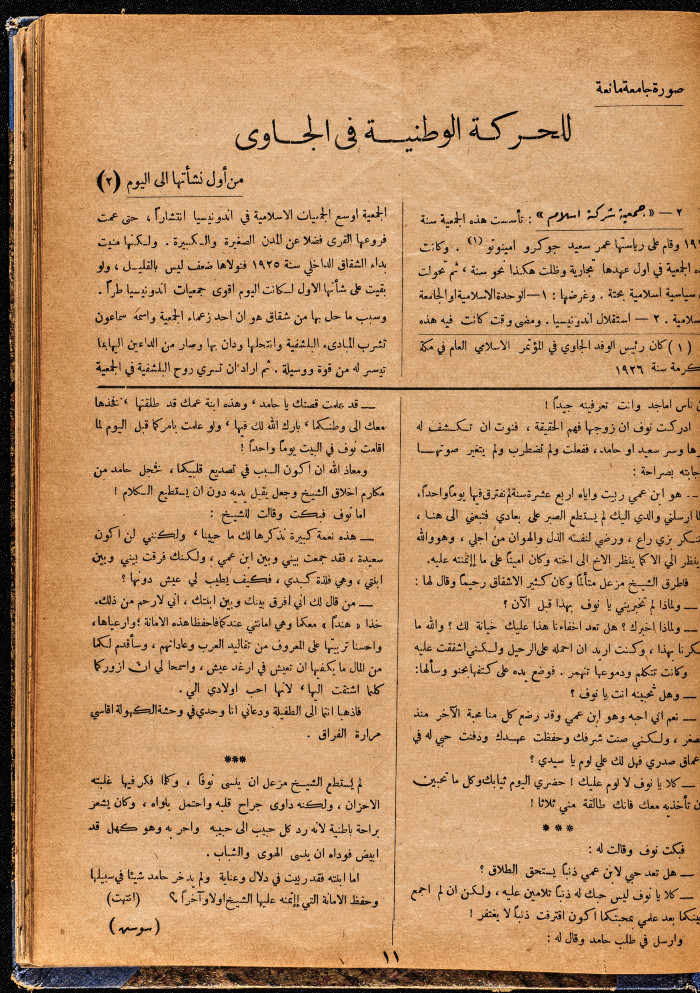 صورة جامعة مانعة
للحركة الوطنية في الجاوى
من أول نشأتها الى اليوم (٢)
٢ — « جمعية شركة اسلام » : تأسست هذه الجمعية سنة
وقام على رياستها عمر سعيد جوكرو امينوتو (١) . وكانت
الجمعية في اول عهدها تجارية وظلت هكذا نحو سنة ، ثم تحولت
سياسية اسلامية بحتة . وغرضها : ١ — الوحدة الاسلامية او الجامعة
٢ — استقلال اندونيسيا . ومضى وقت كانت فيه هذه
(١) كان رئيس الوفد الجاوي في المؤتمر الاسلامي العام في مكة
سنة ١٩٢٦
الجمعية اوسع الجمعيات الاسلامية في اندونيسيا انتشاراً ، حتى عمت
فروعها القرى فضلا عن المدن الصغيرة والكبيرة . ولكنها منيت
بداء الشقاق الداخلي سنة ١٩٢٥ فتولاها ضعف ليس بالقليل ، ولو
بقيت على شأنها الاول لكانت اليوم اقوى جمعيات اندونيسيا طراً .
وسبب ما حل بها من شقاق هو ان احد زعماء الجمعية واسمه سماعون
تشرب المبادىء البلشفية وانتحلها ودان بها وصار من الداعين اليها بما
تيسر له من قوة ووسيلة . ثم اراد ان تسري روح البلشفية في الجمعية
ناس اماجد وانت تعرفينه جيداً !
ادركت نوف ان زوجها فهم الحقيقة ، فنوت ان تكشف له
وسر سعيد او حامد ، ففعلت ولم تضطرب ولم يتغير صوتها
بصراحة :
— هو ابن عمي ربيت واياه اربع عشرة سنة لم نفترق فيها يوماً واحداً ،
ارسلني والدي اليك لم يستطع الصبر على بعادي فتبعني الى هنا ،
بزي راع ، ورضي لنفسه الذل والهوان من اجلي ، وهو والله
ينظر الي الا كما ينظر الاخ الى اخته وكان اميناً على ما إئتمنته عليه .
فاطرق الشيخ مزعل متأثراً وكان كثير الاشفاق رحيماً وقال لها :
— ولماذا لم تخبريني يا نوف بهذا قبل الآن ؟
— ولماذا اخبرك ؟ هل تعد اخفاءنا هذا عليك خيانة لك ؟ والله ما
بهذا ، وكنت اريد ان احمله على الرحيل ولكني اشفقت عليه
وكانت تتكلم ودموعها تنهمر . فوضع يده على كتفها بحنو وسألها :
— وهل تحبينه انت يا نوف ؟
— نعم اني احبه وهو ابن عمي وقد رضع كل منا محبة الآخر منذ
، ولكني صنت شرفك وحفظت عهدك ودفنت حبي له في
صدري فهل لك علي لوم يا سيدي ؟
— كلا يا نوف لا لوم عليك ! حضري اليوم ثيابك وكل ما تحبين
تأخذيه معك فانك طالقة مني ثلاثا !
***
فبكت نوف وقالت له :
— هل تعد حبي لابن عمي ذنباً يستحق الطلاق ؟
— كلا يا نوف ليس حبك له ذنباً تلامين عليه ، ولكن ان لم اجمع
بعد علمي بمحبتكما اكون اقترفت ذنباً لا يغتفر !
وارسل في طلب حامد وقال له :
— قد علمت قصتك يا حامد ، وهذه ابنة عمك قد طلقتها ، تخذها
معك الى وطنكما ، بارك الله لك فيها ، ولو علمت بامركما قبل اليوم لما
اقامت نوف في البيت يوماً واحداً !
ومعاذ الله ان اكون السبب في تصديع قلبيكما ، فخجل حامد من
مكارم اخلاق الشيخ وجعل يقبل يديه دون ان يستطيع الكلام !
اما نوف فبكت وقالت للشيخ :
— هذه نعمة كبيرة نذكرها لك ما حيينا ، ولكنني لن اكون
سعيدة ، فقد جمعت بيني وبين ابن عمي ، ولكنك فرقت بيني وبين
ابنتي ، وهي فلذة كبدي ، فكيف يطيب لي عيش دونها ؟
— من قال لك اني افرق بينك وبين ابنتك ، اني لارحم من ذلك .
خذا « هنداً » معكما وهي امانتي عندكما فاحفظا هذه الامانة ؛ وارعياها ،
واحسنا تربيتها على المعروف من تقاليد العرب وعاداتهم ، وسأقدم لكما
من المال ما يكفيها ان تعيش في ارغد عيش ، واسمحا لي ان ازوركما
كلما اشتقت اليها ، لانها احب اولادي الي .
فاذهبا انتما الى الطفيلة ودعاني انا وحدي في وحشة الكهولة اقاسي
مرارة الفراق .
***
لم يستطع الشيخ مزعل ان ينسى نوفا ، وكلما فكر فيها غلبته
الاحزان ، ولكنه داوى جراح قلبه واحتمل بلواه ، وكان يشعر
براحة باطنية لانه رد كل حبيب الى حبيبه واحر به وهو كهل قد
ابيض فوداه ان ينسى الهوى والشباب .
اما ابنته فقد ربيت في دلال وعناية ولم يدخر حامد شيئا في سبيلها
وحفظ الامانة التي إئتمنه عليها الشيخ اولا وآخراً ؟ (انتهت)
(سوسن)
١١